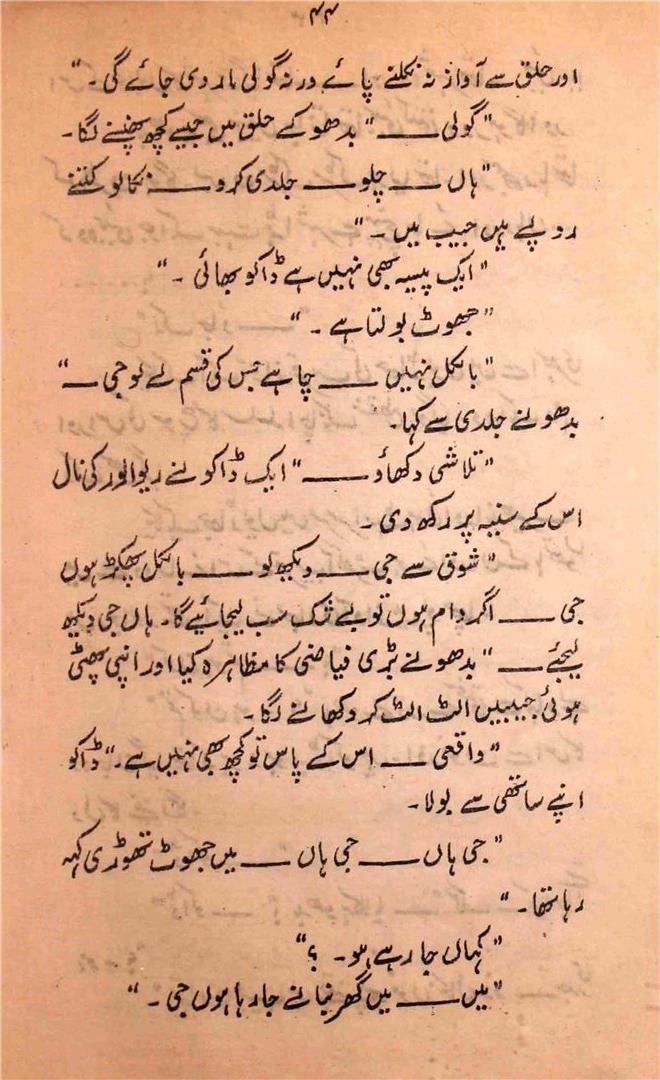 ۴۴
اور حلق سے آواز نہ نکلنے پائے ورنہ گولی مار دی جائے گی۔"
"گولی ——" بدھو کے حلق میں جیسے کچھ پھنسنے لگا۔
"ہاں —— چلو —— جلدی کرو —— نکالو کتنے
روپے ہیں جیب میں۔"
"ایک پیسہ بھی نہیں ہے ڈاکو بھائی۔"
"جھوٹ بولتا ہے۔"
"بالکل نہیں —— چاہے جس کی قسم لے لو جی ——"
بدھو نے جلدی سے کہا۔
"تلاشی دکھاؤ ——" ایک ڈاکو نے ریوالور کی نال
اس کے سینہ پر رکھ دی۔
"شوق سے جی —— دیکھ لو —— بالکل پھکڑ ہوں
جی —— اگر دام ہوں تو بے شک سب لیجائیے گا۔ ہاں جی دیکھ
لیجئے ——" بدھو نے بڑی فیاضی کا مظاہرہ کیا اور اپنی پھٹی
ہوئی جیبیں الٹ الٹ کر دکھانے لگا۔
"واقعی —— اس کے پاس تو کچھ بھی نہیں ہے۔" ڈاکو
اپنے ساتھی سے بولا۔
"جی ہاں —— جی ہاں —— میں جھوٹ تھوڑی کہہ
رہا تھا۔"
"کہاں جا رہے ہو۔ ؟"
"میں —— میں گھر بنانے جا رہا ہوں جی۔"